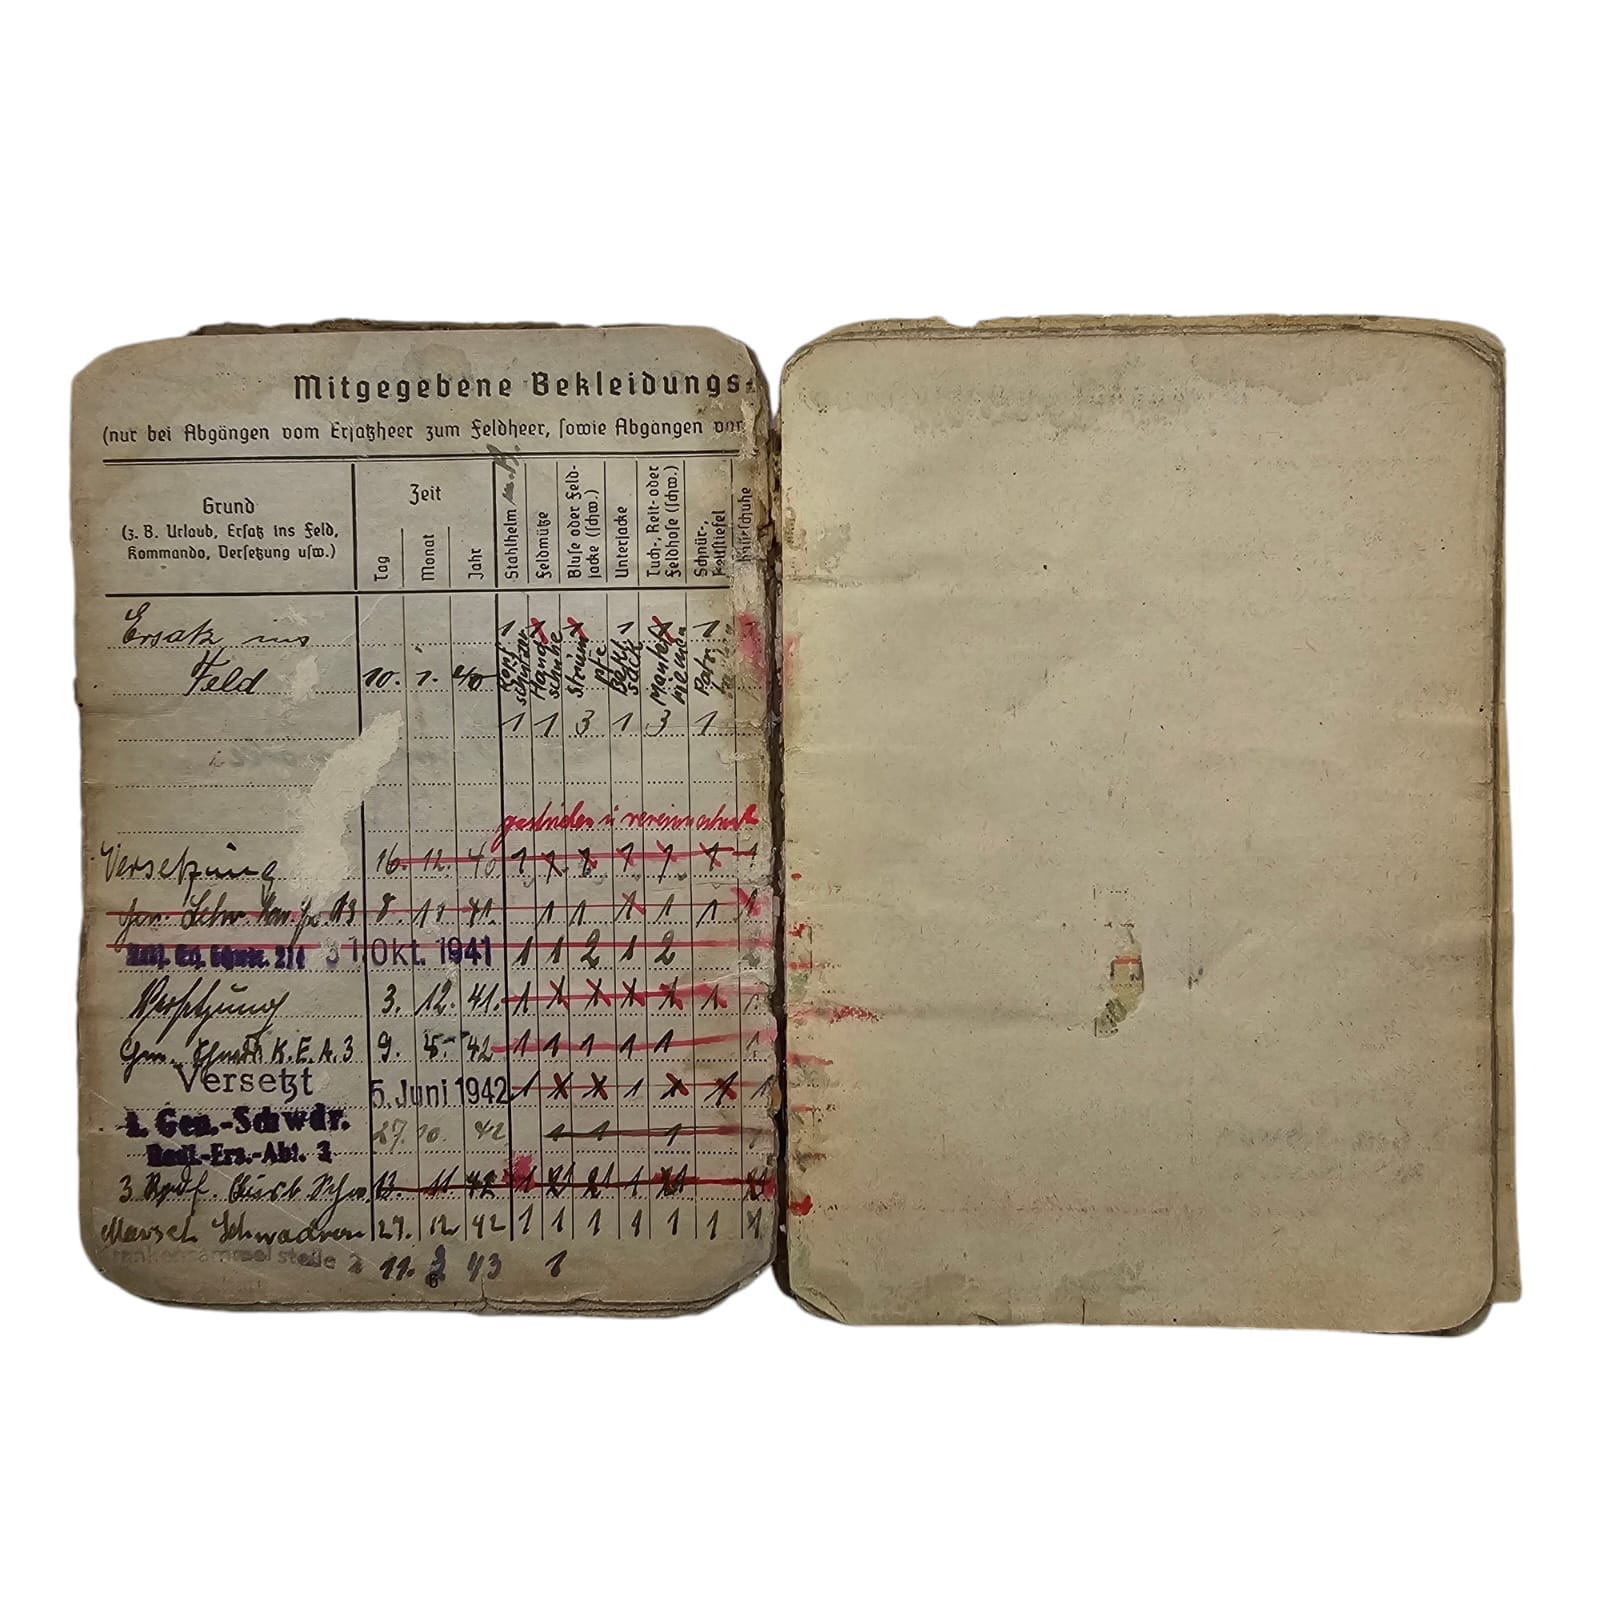 Mitgegebene Bekleidungs-
(nur bei Abgängen vom Ersatzheer zum Feldheer, sowie Abgängen von
Grund
(z. B. Urlaub, Ersatz ins Feld,
Kommando, Versetzung usw.)
Zeit
Tag
Monat
Jahr
Stahlhelm
Feldmütze
Bluse oder Feld-
jacke (schw.)
Unterjacke
Tuch-, Reit- oder
Feldhose (schw.)
Schnür-,
Ersatz ins 1 1 1 1 1 1
Feld 10. 1. 40
Kopf
schützer
Hand
schuhe
1 1 3 1 3 1
gestrichen u
Versetzung 16. 12. 40 1 1 1 1 1 1
8. 11 41. 1 1 1 1 1
31 Okt. 1941 1 1 2 1 2 2
Versetzung 3. 12. 41. 1 1 1 1 1 1 1
Gen. K. E. A. 3 9. 5. 42 1 1 1 1 1 1
Versetzt
5. Juni 1942 1 1 1 1 1 1 1
1. Gen.-Schwdr.
27. 10. 42 1 1 1 1
Radf.-Ers.-Abt. 3
3. 13. 11 42 1
Marsch Schwadron 27. 12 42 1 1 1 1 1 1 1
krankensammelstelle 2 11. 43 1
6